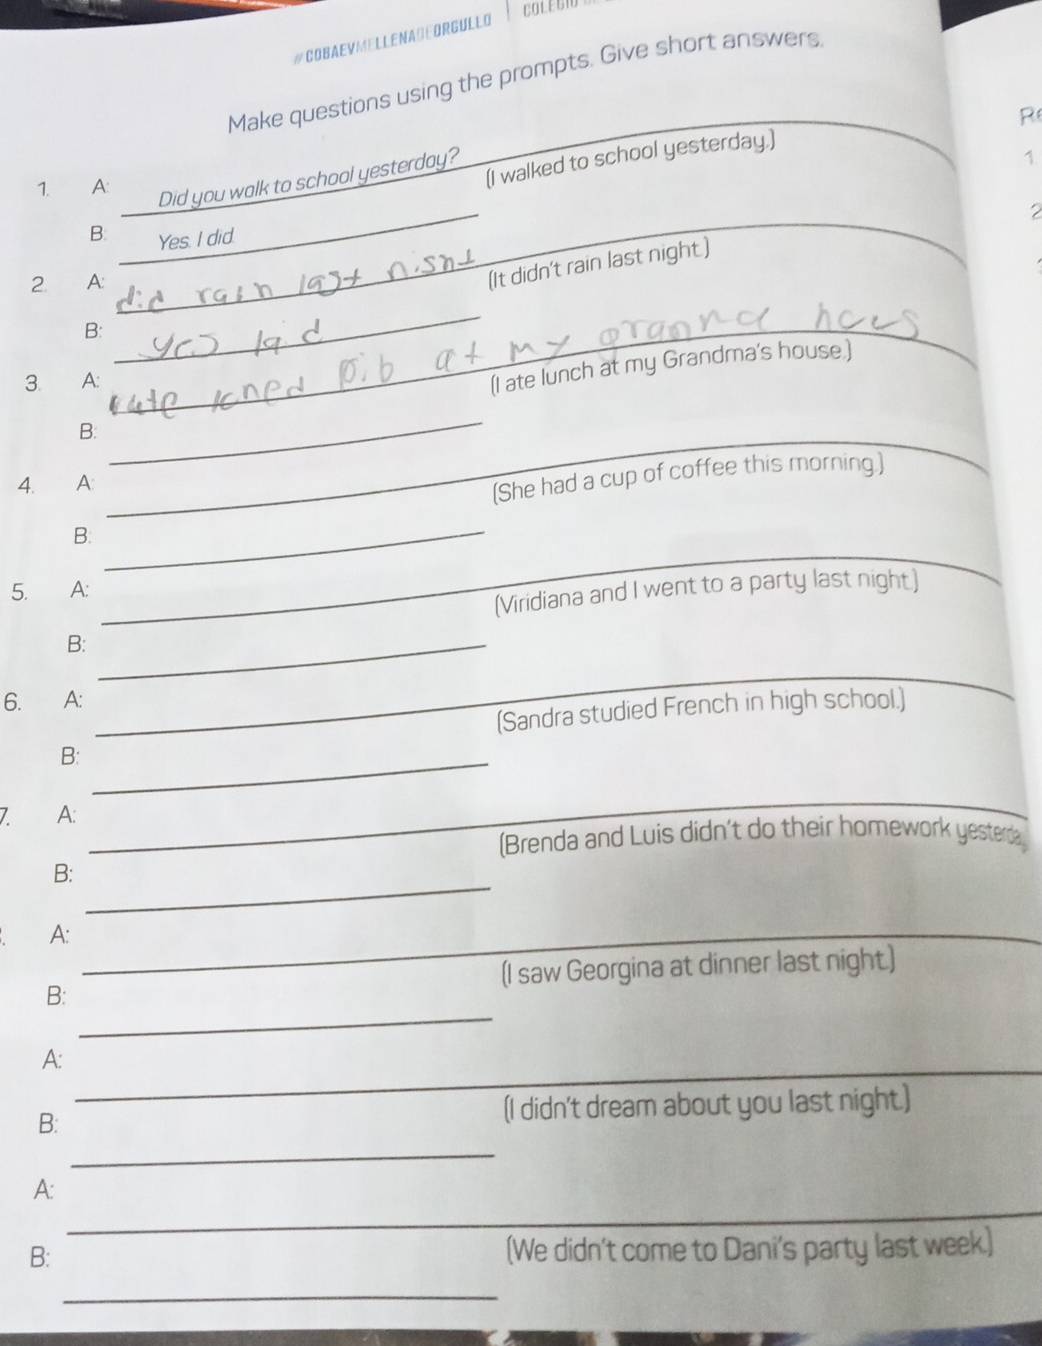 #COBAEVMELLENADEORGULLO | COLEGIO
Make questions using the prompts. Give short answers.
Re
1. A: Did you walk to school yesterday? (I walked to school yesterday.)
1.
B: Yes. I did.
2
2. A: did rain last nisht (It didn't rain last night.)
B:
3. A: at my (I ate lunch at my Grandma's house.)
B:
4. A: (She had a cup of coffee this morning.)
B:
5. A: (Viridiana and I went to a party last night.)
B:
6. A: (Sandra studied French in high school.)
B:
7. A: (Brenda and Luis didn't do their homework yesterday
B:
A: (I saw Georgina at dinner last night.)
B:
A: (I didn't dream about you last night.)
B:
A: (We didn't come to Dani's party last week.)
B: